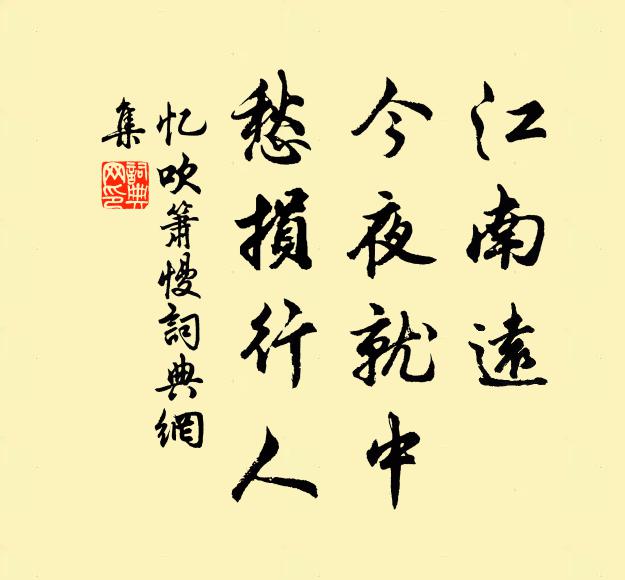 江南遠
今夜就中
愁損行人
忆吹簫慢詞典網
集
詞典
网印